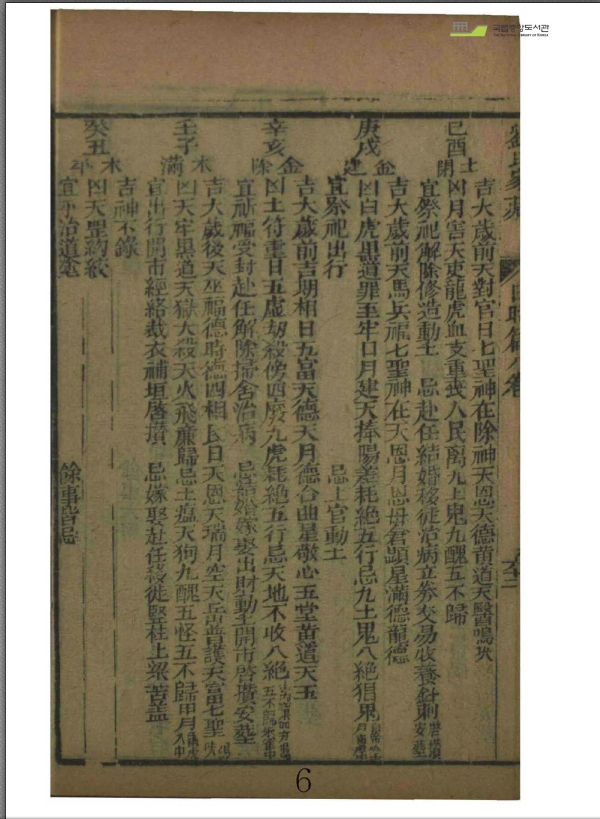 국립중앙도서관
THE NATIONAL LIBRARY OF KOREA
劉氏家藏 日時篇八卷
己酉
土閉
吉大歲前天對官日七聖神在除神天恩天德黃道天醫鳴吠
凶月害天吏龍虎血支重喪人民离九土鬼九醜五不歸
宜祭祀解除修造動土 忌赴任結婚移徒治病立券交易收養針刺
庚戌
金建
吉大歲前天馬兵福七聖神在天恩月恩母倉顯星滿德龍德
凶白虎黑道罪至牢日月建天捧陽差耗絶五行忌九土鬼八絶
宜祭祀出行 忌上官動土
辛亥
金除
吉大歲前吉期相日五富天德天月德合曲星敬心五堂黃道天玉
凶土符重日五虛劫殺傍四廢九虎耗絶五行忌天地不收八絶
宜祈福受封赴任解除掃舍治病 忌結婚嫁娶出財動土開市啓攢安葬
壬子
木滿
吉大歲後天巫福德時德四相民日天恩天瑞月空天岳普護天富七聖
凶天牢黑道天獄大殺天火飛廉歸忌土瘟天狗九醜五怪五不歸
宜出行開市經絡裁衣補垣啓攢 忌嫁娶赴任移徒竪柱上梁苫盖
癸丑
木平
吉神不錄
凶天罡約絞
宜平治道塗 餘事皆忌
6